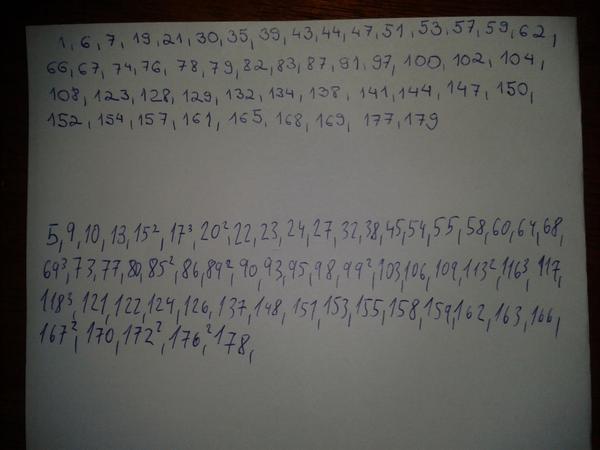 1, 6, 7, 19, 21, 30, 35, 39, 43, 44, 47, 51, 53, 57, 59, 62,
66, 67, 74, 76, 78, 79, 82, 83, 87, 91, 97, 100, 102, 104,
108, 123, 128, 129, 132, 134, 138, 141, 144, 147, 150,
152, 154, 157, 161, 165, 168, 169, 177, 179
5, 9, 10, 13, 15², 17³, 20², 22, 23, 24, 27, 32, 38, 45, 54, 55, 58, 60, 64, 68,
69³, 73, 77, 80, 85², 86, 89², 90, 93, 95, 98, 99², 103, 106, 109, 113², 116³, 117,
118³, 121, 122, 124, 126, 137, 148, 151, 153, 155, 158, 159, 162, 163, 166,
167², 170, 172², 176², 178,